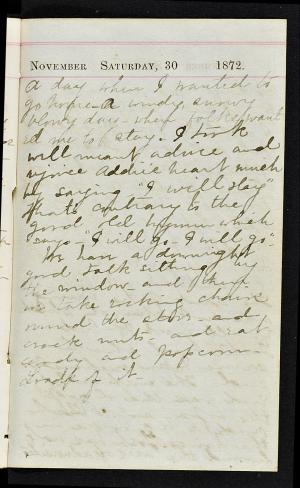 November Saturday, 30 1872.
A day when I wanted to
go home - A windy, snowy
blowy day - when folks want
ed me to stay. I took
well meant advice and
rejoice Addie heart much
by saying "I will stay"
thats contrary to the
good old hymn which
says - "I will go - I will go".
We have a downright
good talk sitting by
the window - and then
we take rocking chairs
round the stove - and
crack nuts - and eat
candy and popcorn -
Loads of it.